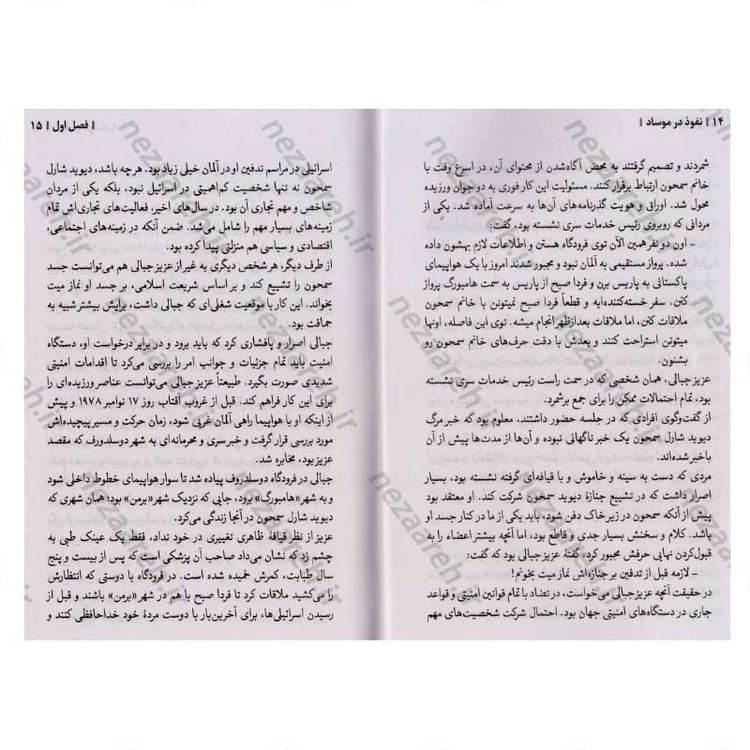 ۱۴ || نفوذ در موساد ||
شمردند و تصمیم گرفتند به محض آگاه‌شدن از محتوای آن، در اسرع وقت با
خانم سمحون ارتباط برقرار کنند. مسئولیت این کار فوری به دو جوان ورزیده
محول شد. اوراق و هویت گذرنامه‌های آن‌ها به سرعت آماده شد. یکی از
مردانی که روبروی رئیس خدمات سری نشسته بود، گفت:
- اون دو نفر همین الآن توی فرودگاه هستن و اطلاعات لازم بهشون داده
شده. پرواز مستقیمی به آلمان نبود و مجبور شدند امروز با یک هواپیمای
پاکستانی به پاریس برن و فردا صبح از پاریس به سمت هامبورگ پرواز
کنن. سفر خسته‌کننده‌ایه و قطعاً فردا صبح نمیتونن با خانم سمحون
ملاقات کنن، اما ملاقات بعدازظهر انجام میشه. توی این فاصله، اونها
میتونن استراحت کنند و بعدش با دقت حرف‌های خانم سمحون رو
بشنون.
عزیز جبالی، همان شخصی که در سمت راست رئیس خدمات سری نشسته
بود، تمام احتمالات ممکن را برای جمع برشمرد.
از گفت‌وگوی افرادی که در جلسه حضور داشتند، معلوم بود که خبر مرگ
دیوید شارل سمحون یک خبر ناگهانی نبوده و آن‌ها از مدت‌ها پیش از آن
باخبر شده‌اند.
مردی که دست به سینه و خاموش و با قیافه‌ای گرفته نشسته بود، بسیار
اصرار داشت که در تشییع جنازهٔ دیوید سمحون شرکت کند. او معتقد بود
پیش از آنکه سمحون در زیر خاک دفن شود، باید یکی از ما در کنار جسد او
باشد. کلام و سخنش بسیار جدی و قاطع بود، اما آنچه بیشتر اعضاء را به
قبول‌کردن نهایی حرفش مجبور کرد، گفتهٔ عزیز جبالی بود که گفت:
- لازمه قبل از تدفین بر جنازه‌اش نماز میت بخونم!
در حقیقت آنچه عزیز جبالی می‌خواست، در تضاد با تمام قوانین امنیتی و قواعد
جاری در دستگاه‌های امنیتی جهان بود. احتمال شرکت شخصیت‌های مهم
|| فصل اول || ۱۵
اسرائیلی در مراسم تدفین او در آلمان خیلی زیاد بود. هرچه باشد، دیوید شارل
سمحون نه تنها شخصیت کم‌اهمیتی در اسرائیل نبود، بلکه یکی از مردان
شاخص و مهم تجاری آن بود. در سال‌های اخیر، فعالیت‌های تجاری‌اش تمام
زمینه‌های بسیار مهم را شامل می‌شد. ضمن آنکه در زمینه‌های اجتماعی،
اقتصادی و سیاسی هم منزلتی پیدا کرده بود.
از طرف دیگر، هر شخص دیگری به غیر از عزیز جبالی هم می‌توانست جسد
سمحون را تشییع کند و بر اساس شریعت اسلامی، بر جسد او نماز میت
بخواند. این کار با موقعیت شغلی‌ای که جبالی داشت، برایش بیشتر شبیه به
حماقت بود.
جبالی اصرار و پافشاری کرد که باید برود و در برابر درخواست او، دستگاه
امنیت باید تمام جزئیات و جوانب امر را بررسی می‌کرد تا اقدامات امنیتی
شدیدی صورت بگیرد. طبیعتاً عزیز جبالی می‌توانست عناصر ورزیده‌ای را
برای این کار فراهم کند. قبل از غروب آفتاب روز ۱۷ نوامبر ۱۹۷۸ و پیش
از اینکه او با هواپیما راهی آلمان غربی شود، زمان حرکت و مسیر پیچیده‌اش
مورد بررسی قرار گرفت و خبر سری و محرمانه‌ای به شهر دوسلدورف که مقصد
عزیز بود، مخابره شد.
جبالی در فرودگاه دوسلدورف پیاده شد تا سوار هواپیمای خطوط داخلی شود
و به شهر «هامبورگ» برود، جایی که نزدیک شهر «برمن» بود؛ همان شهری که
دیوید شارل سمحون در آنجا زندگی می‌کرد.
عزیز از نظر قیافهٔ ظاهری تغییری در خود نداد، فقط یک عینک طبی به
چشم زد که نشان می‌داد صاحب آن پزشکی است که پس از بیست و پنج
سال طبابت، کمرش خمیده شده است. در فرودگاه با دوستی که انتظارش
را می‌کشید ملاقات کرد تا فردا صبح با هم در شهر «برمن» باشند و قبل از
رسیدن اسرائیلی‌ها، برای آخرین‌بار با دوست مردهٔ خود خداحافظی کنند و
nezaareh.ir